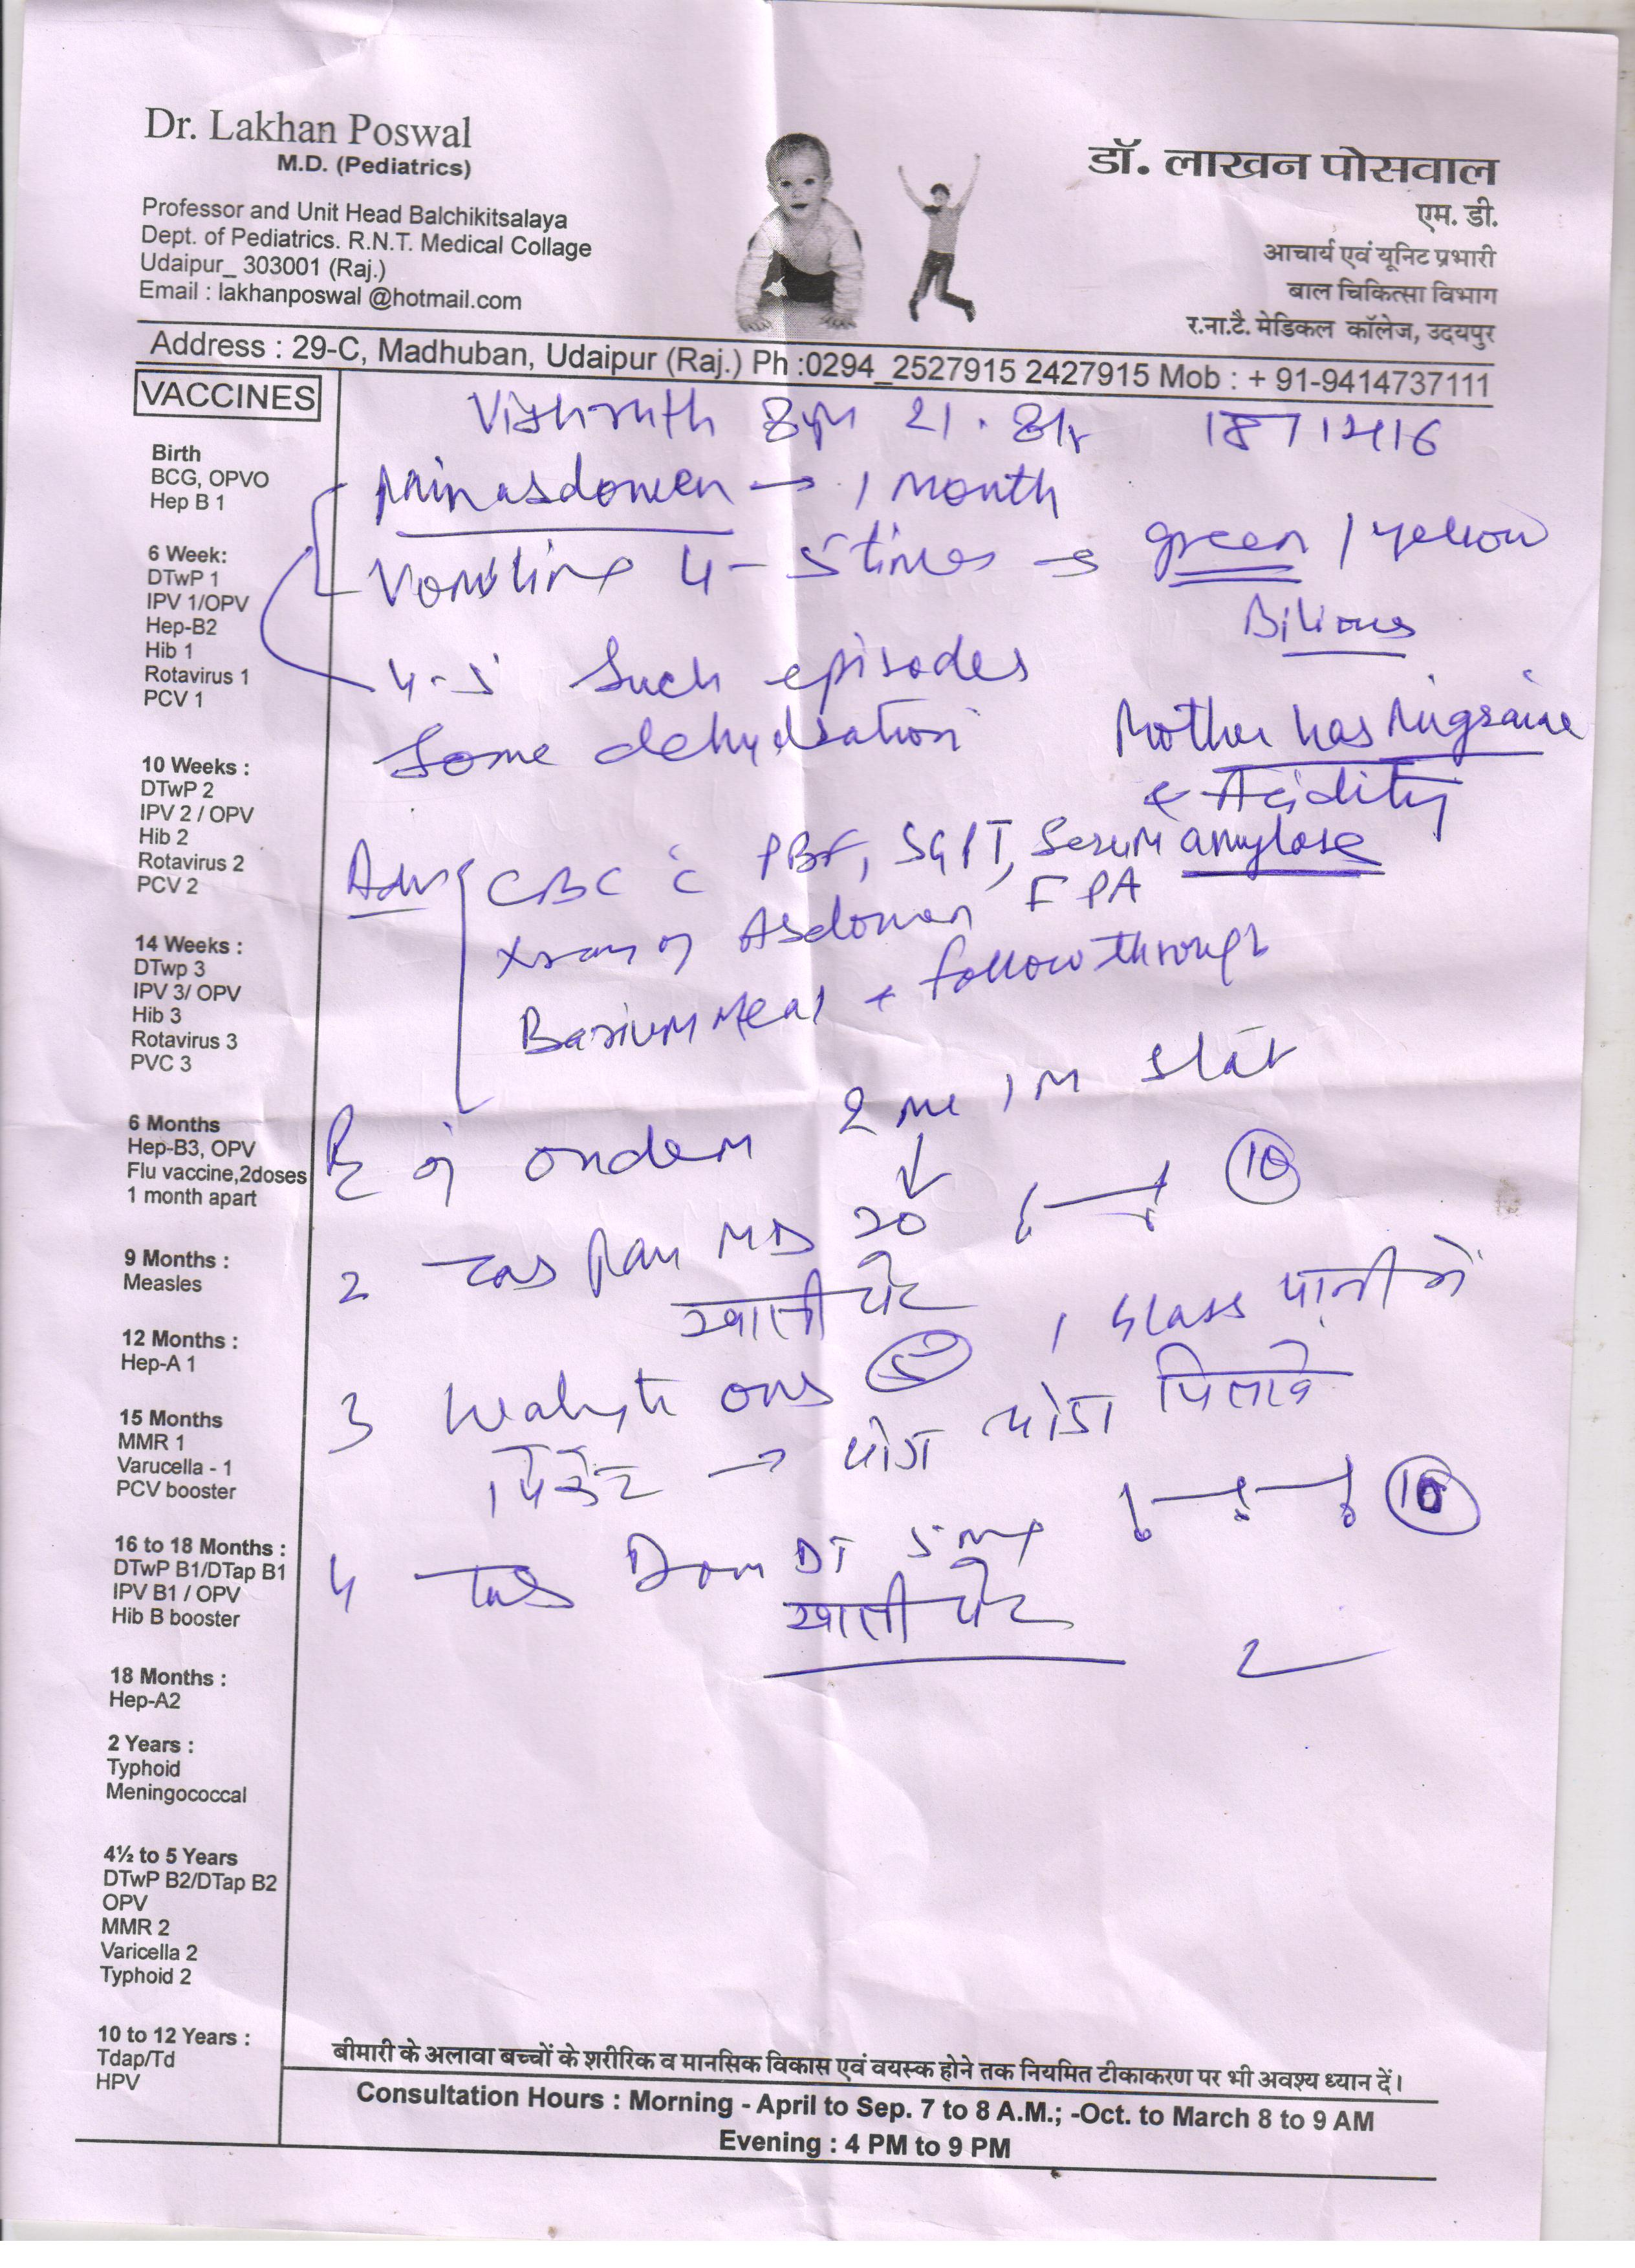 Dr. Lakhan Poswal
M.D. (Pediatrics)
Professor and Unit Head Balchikitsalaya
Dept. of Pediatrics. R.N.T. Medical Collage
Udaipur_ 303001 (Raj.)
Email : lakhanposwal @hotmail.com
डॉ. लाखन पोसवाल
एम. डी.
आचार्य एवं यूनिट प्रभारी
बाल चिकित्सा विभाग
र.ना.टै. मेडिकल कॉलेज, उदयपुर
Address : 29-C, Madhuban, Udaipur (Raj.) Ph :0294_2527915 2427915 Mob : + 91-9414737111
VACCINES
Birth
BCG, OPVO
Hep B 1
6 Week:
DTwP 1
IPV 1/OPV
Hep-B2
Hib 1
Rotavirus 1
PCV 1
10 Weeks :
DTwP 2
IPV 2 / OPV
Hib 2
Rotavirus 2
PCV 2
14 Weeks :
DTwp 3
IPV 3/ OPV
Hib 3
Rotavirus 3
PVC 3
6 Months
Hep-B3, OPV
Flu vaccine,2doses
1 month apart
9 Months :
Measles
12 Months :
Hep-A 1
15 Months
MMR 1
Varucella - 1
PCV booster
16 to 18 Months :
DTwP B1/DTap B1
IPV B1 / OPV
Hib B booster
18 Months :
Hep-A2
2 Years :
Typhoid
Meningococcal
4½ to 5 Years
DTwP B2/DTap B2
OPV
MMR 2
Varicella 2
Typhoid 2
10 to 12 Years :
Tdap/Td
HPV
Pain abdomen → 1 month
Vomiting 4-5 times → green / yellow
Bilious
4-5 Such episodes
Some dehydration
Mother has Migraine
& Acidity
Adv CBC c̄ PBF, SGPT, Serum amylase
Xray of Abdomen FPA
Barium Meal + follow through
Rx Ondem 2 ml IM stat
2 Tab Pan MD 20 10
खाली पेट
3 Walyte ORS 5 1 Glass पानी में
1 पैकेट → थोडा थोडा पिलावे
4 Tab Dom DT 5 mg
खाली पेट
बीमारी के अलावा बच्चों के शरीरिक व मानसिक विकास एवं वयस्क होने तक नियमित टीकाकरण पर भी अवश्य ध्यान दें।
Consultation Hours : Morning - April to Sep. 7 to 8 A.M.; -Oct. to March 8 to 9 AM
Evening : 4 PM to 9 PM